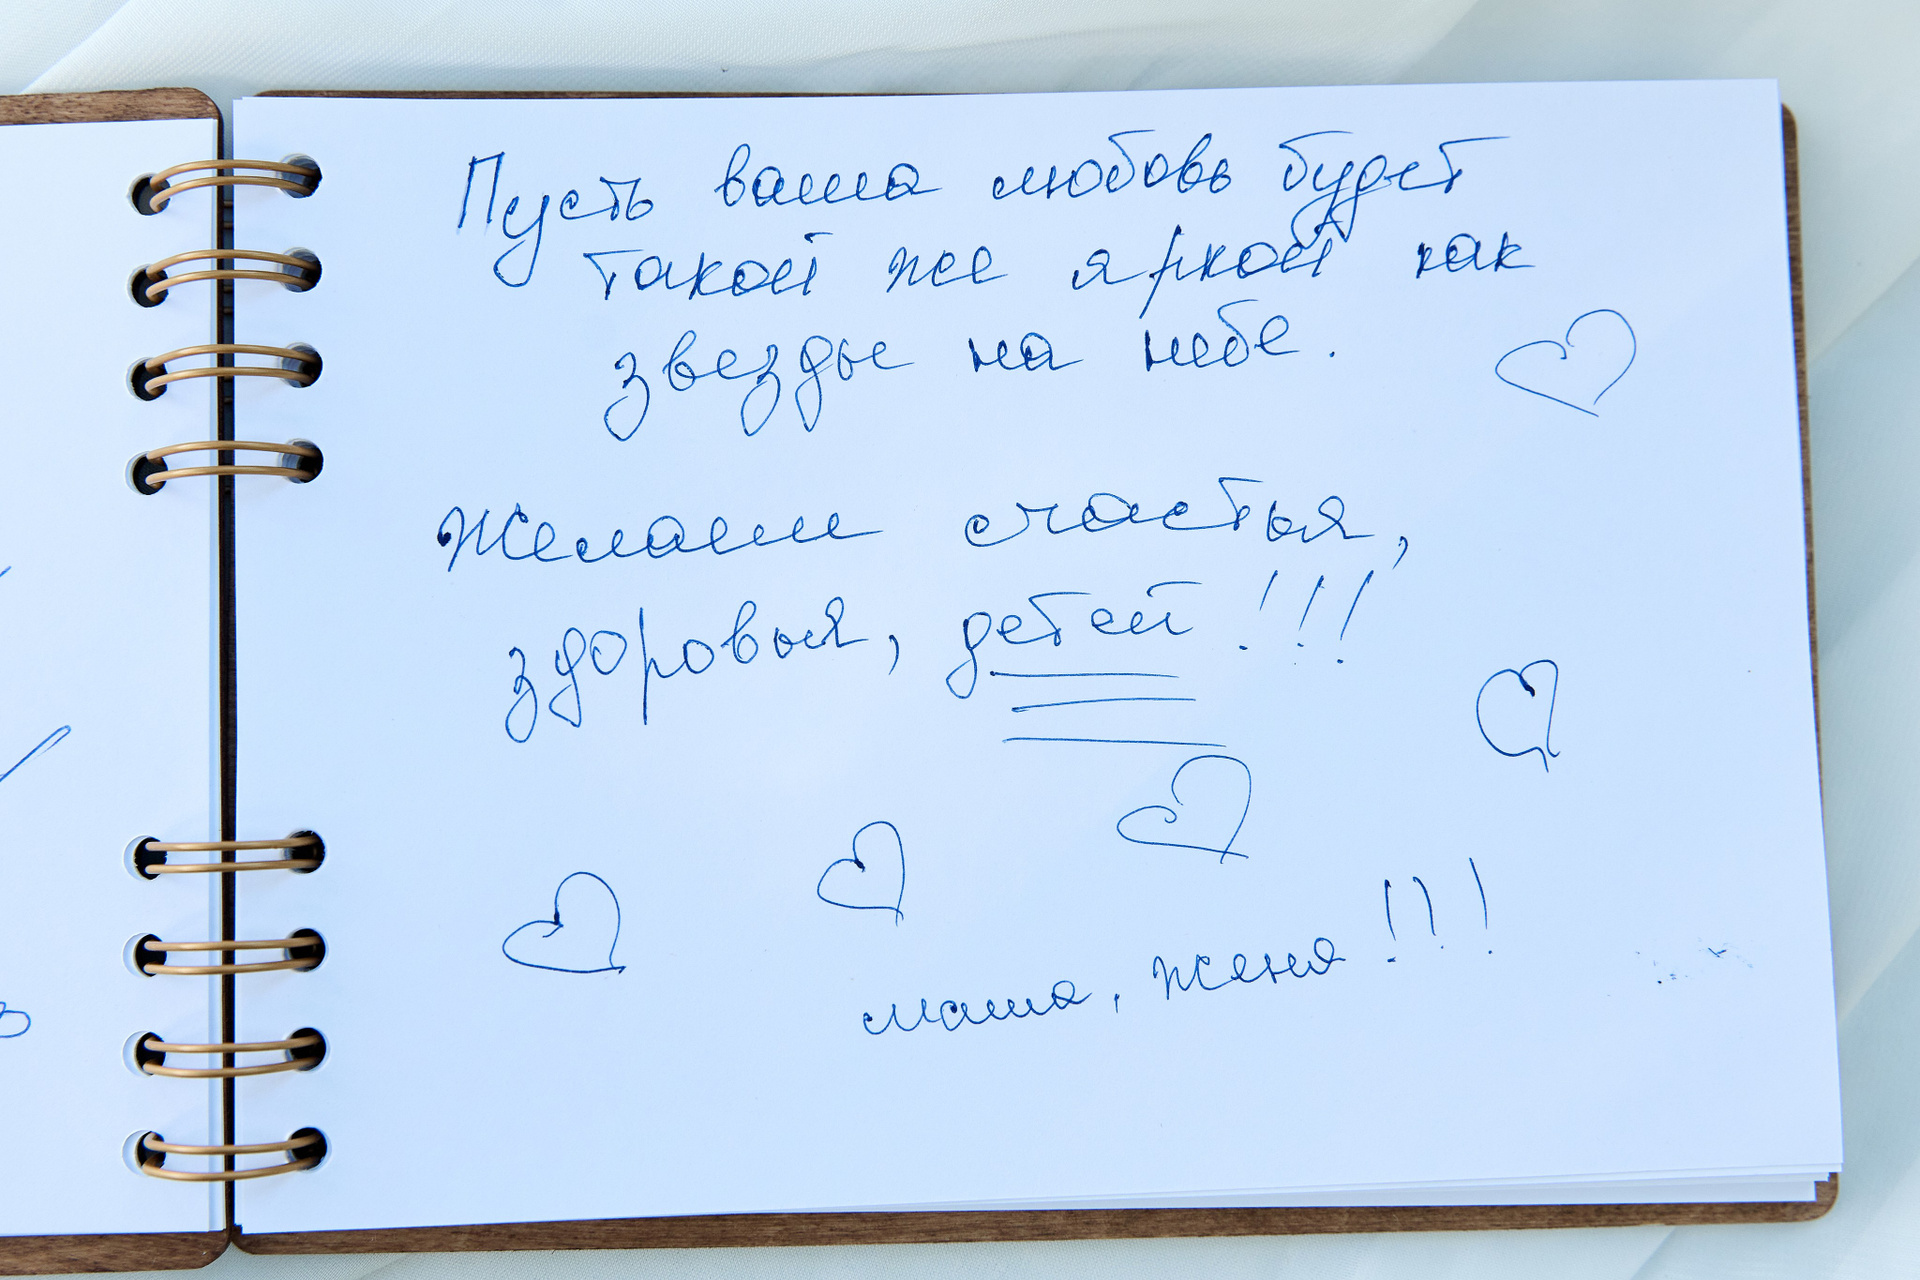 Пусть ваша любовь будет
такой же яркой как
звезды на небе.
Желаем счастья,
здоровья, детей!!!
маша, женя!!!